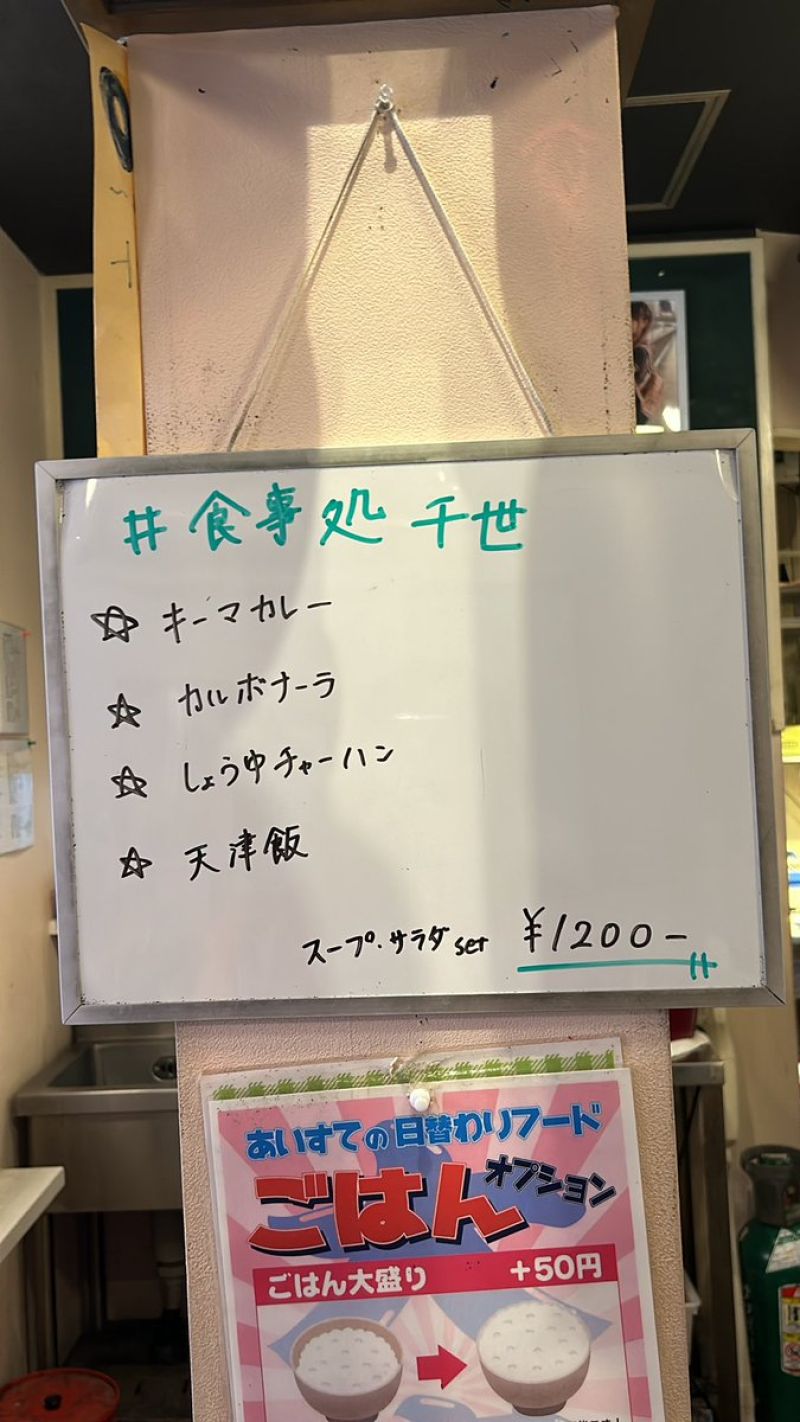 #食事処 千世
☆ キーマカレー
☆ カルボナーラ
☆ しょうゆチャーハン
☆ 天津飯
スープ・サラダset ¥1200-
あいすての日替わりフード
ごはんオプション
ごはん大盛り +50円